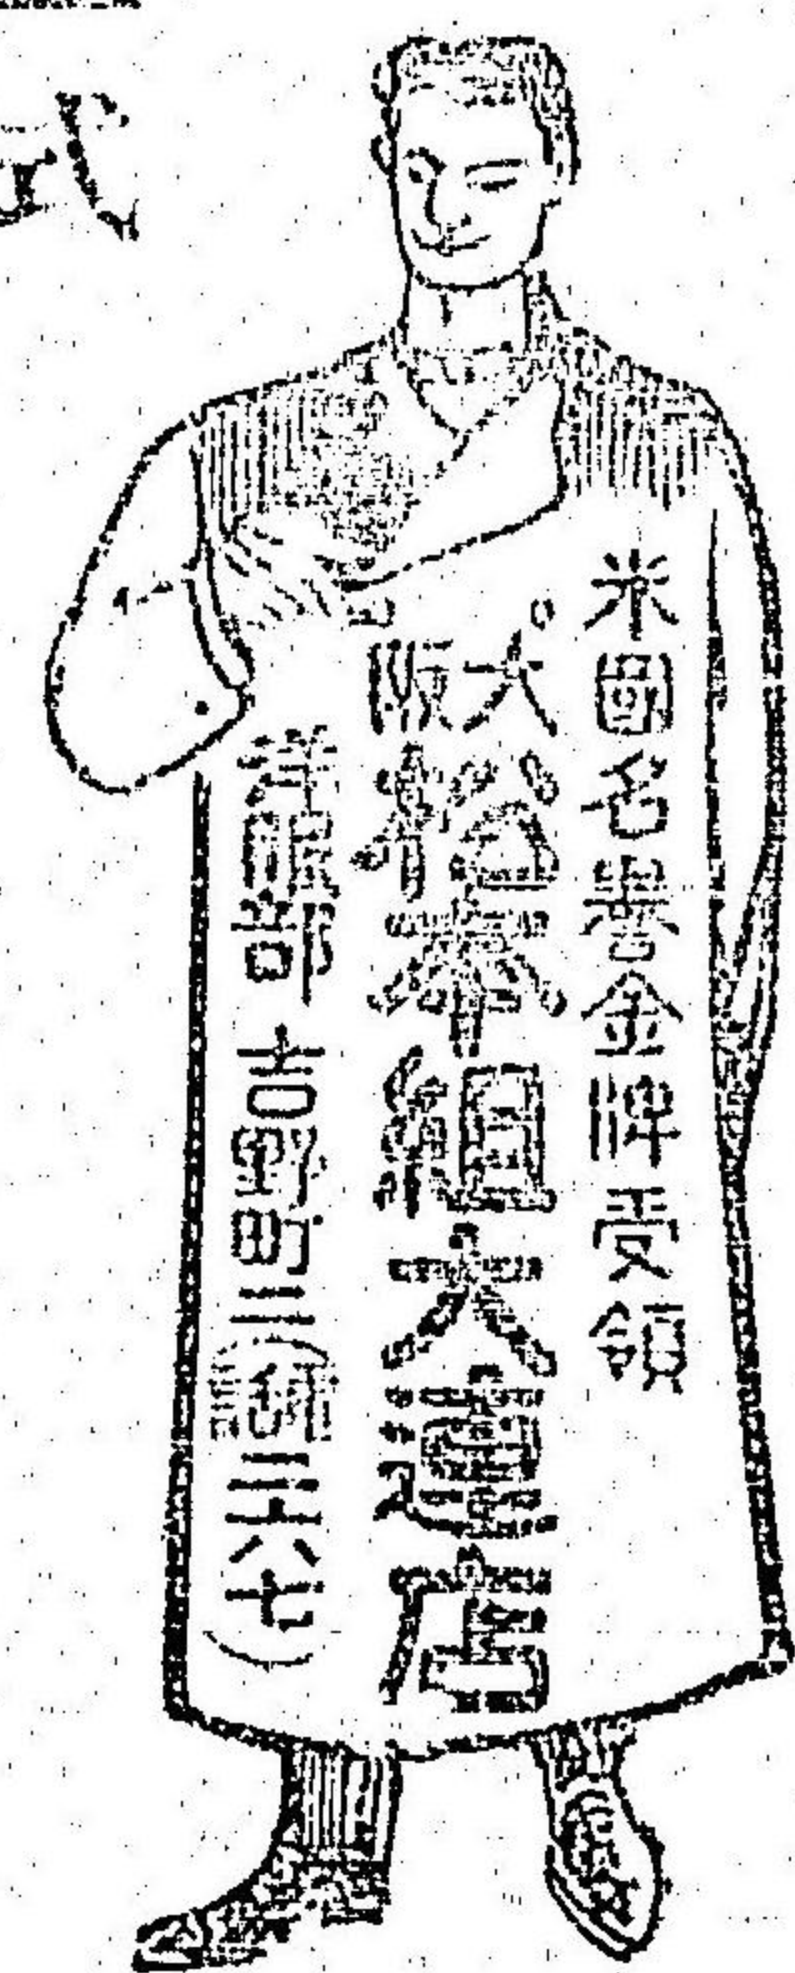 式
米國名誉金牌受領
大阪
松本組大連店
洋服部 吉野町三(電話二六七)